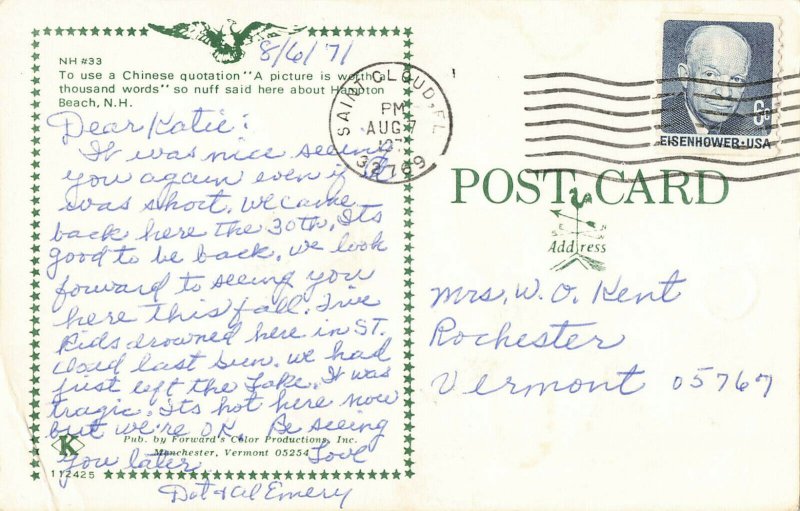 8/6/71
NH #33
To use a Chinese quotation "A picture is worth a
thousand words" so nuff said here about Hampton
Beach, N.H.
Dear Katie:
It was nice seeing
you again even if it
was short. We came
back here the 30th. Its
good to be back. We look
forward to seeing you
here this fall. Five
Kids drowned here in ST.
Cloud last Sun. we had
just left the Lake. It was
tragic. Its hot here now
but we're O.K. Be seeing
you later Love
Dot & Al Emery
K
Pub. by Forward's Color Productions, Inc.
Manchester, Vermont 05254
112425
SAINT CLOUD, FL
PM
AUG 7
197
32769
6¢
EISENHOWER·USA
POST CARD
Address
Mrs. W. O. Kent
Rochester
Vermont 05767